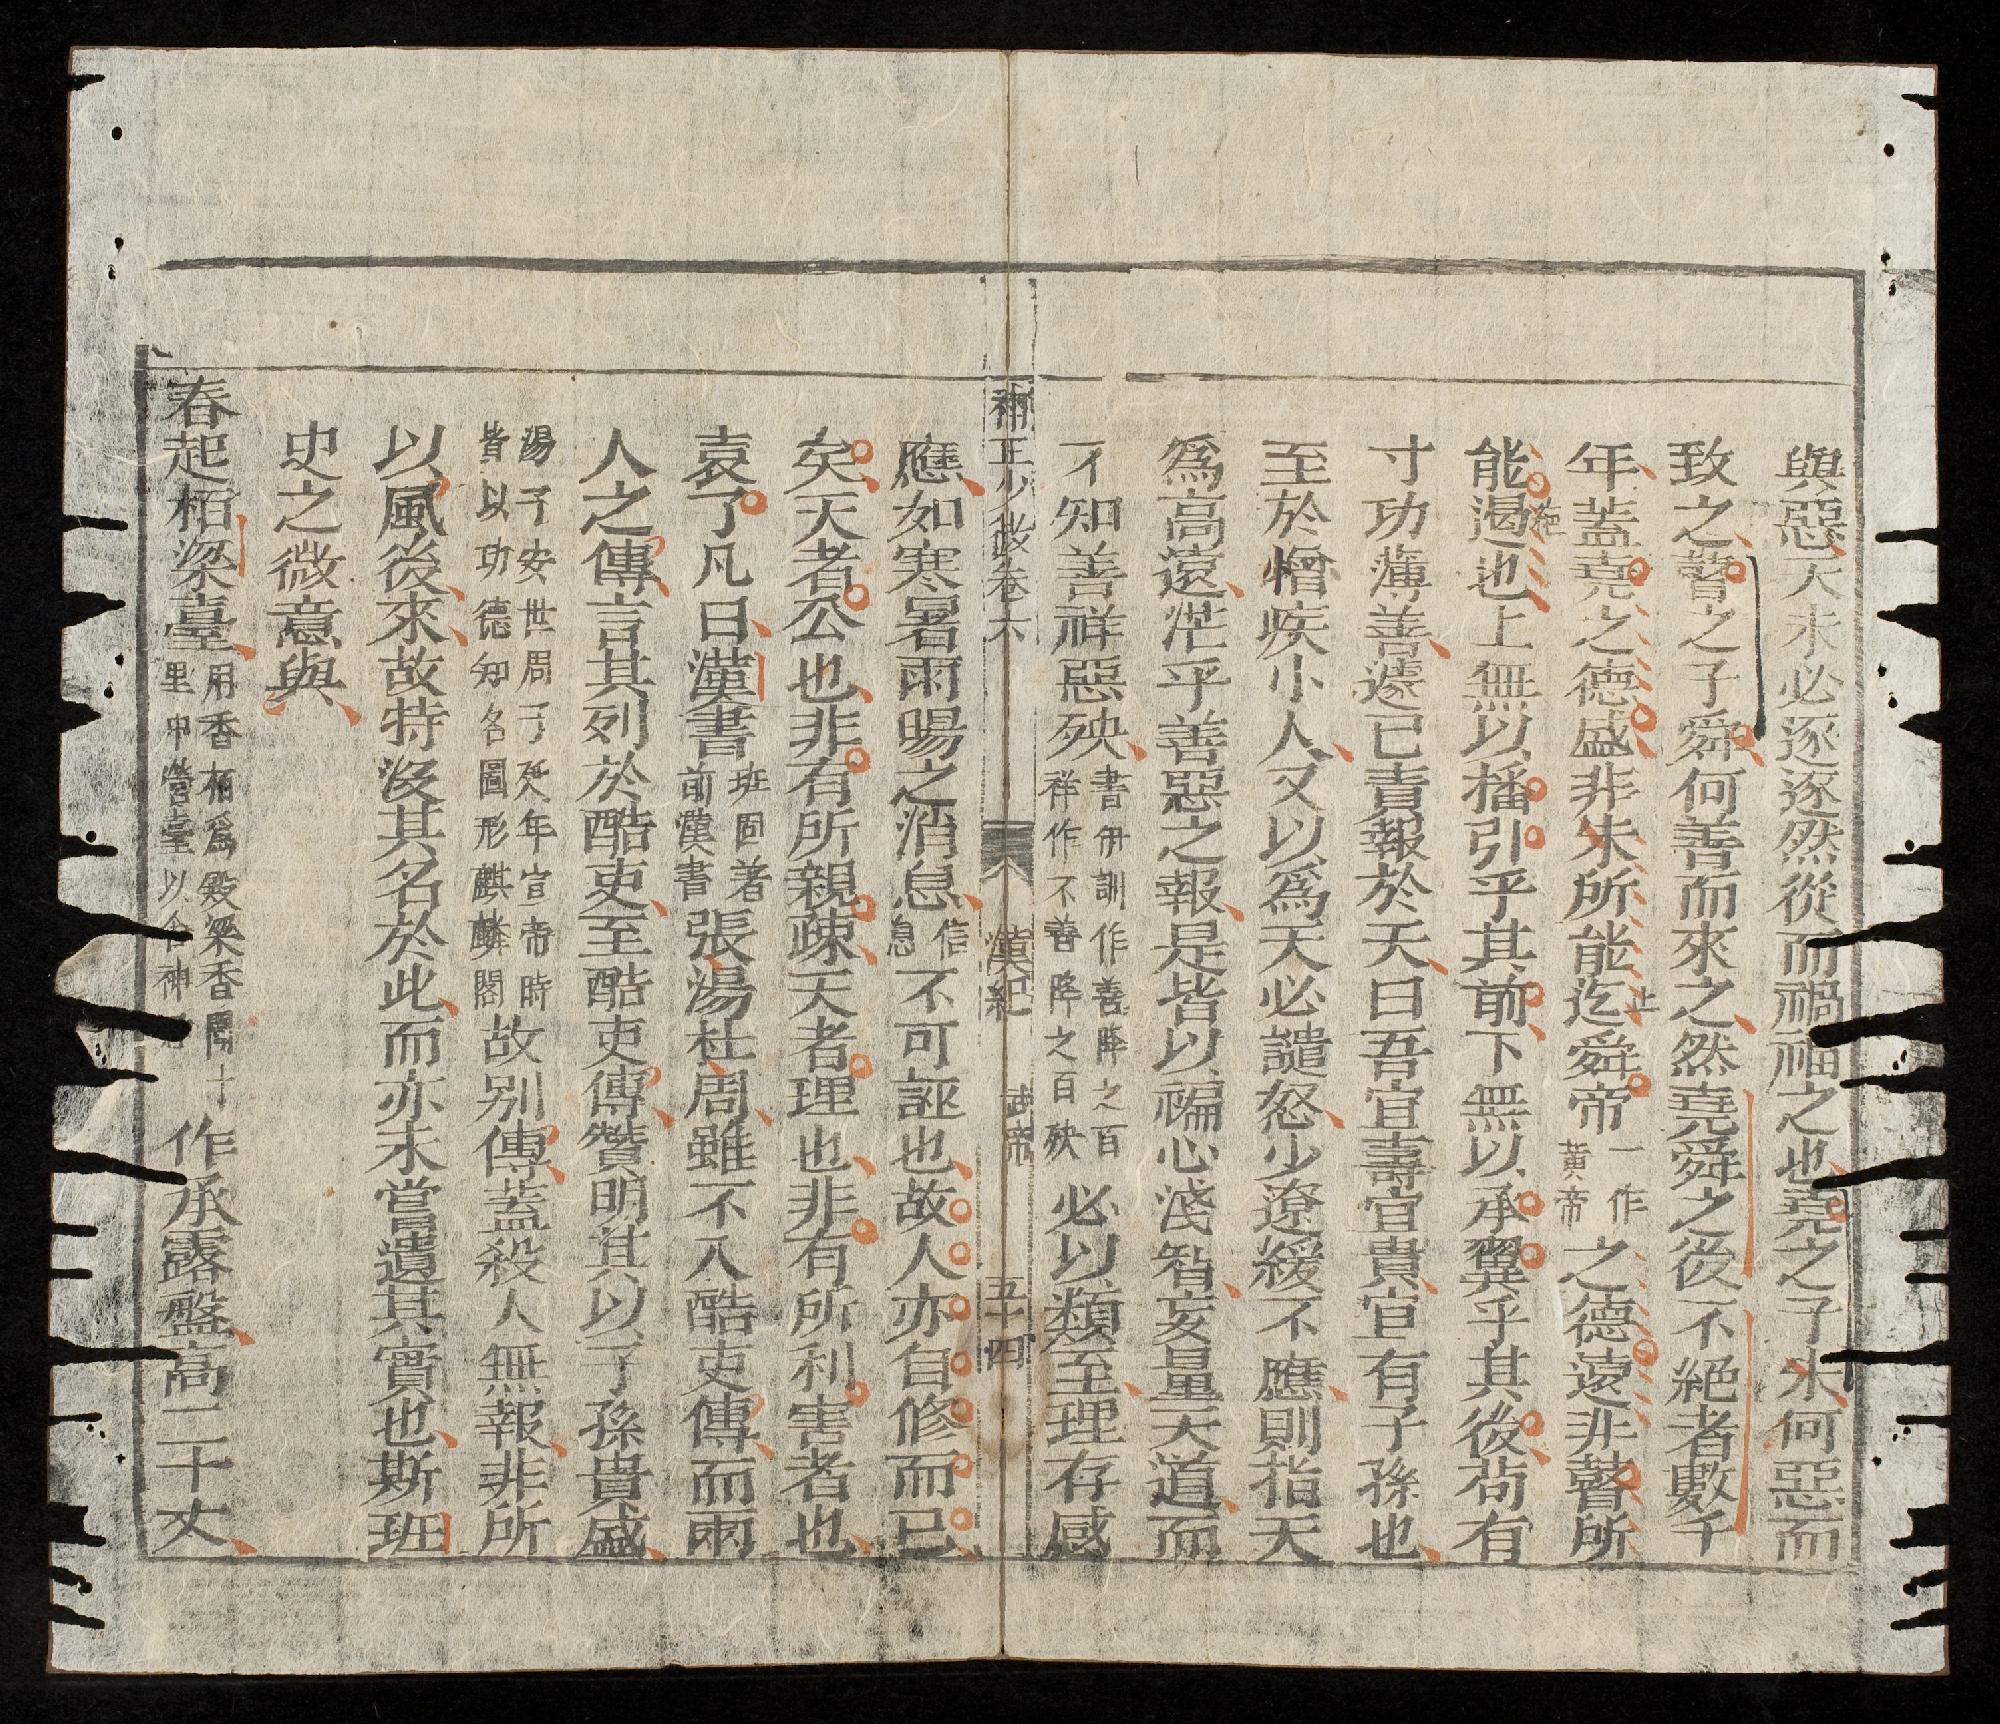 與惡天未必逐逐然從而禍福之也堯之子朱何惡而
致之瞽之子舜何善而來之然堯舜之後不絕者數千
年蓋堯之德盛非朱所能迄舜帝一作黃帝之德遠非瞽所
止
能遏也上無以播引乎其前下無以承翼乎其後苟有
寸功薄善遽已責報於天曰吾宜壽宜貴宜有子孫也
至於憎疾小人又以為天必譴怒少遼緩不應則指天
為高遠茫乎善惡之報是皆以褊心淺智妄量天道而
不知善祥惡殃書伊訓作善降之百祥作不善降之百殃必以類至理存感
補正少微卷六 漢紀 武帝 五十四
應如寒暑雨暘之消息信息不可誣也故人亦自修而已
矣天者公也非有所親疎天者理也非有所利害者也
袁了凡曰漢書班固著前漢書張湯杜周雖不入酷吏傳而兩
人之傳言其列於酷吏至酷吏傳贊明其以子孫貴盛
湯子安世周子延年宣帝時皆以功德知名圖形麒麟閣故別傳蓋殺人無報非所
以風後來故特沒其名於此而亦未嘗遺其實也斯班
史之微意與
春起栢梁臺用香栢為殿梁香聞十里中營臺以令神作承露盤高二十丈